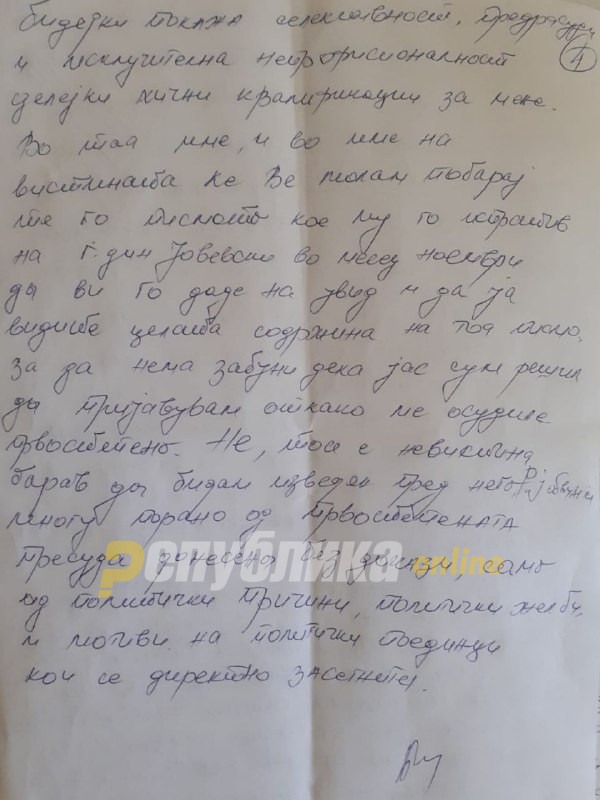 бидејќи покажа селективност, предрасуди
4
и исклучителна непрофисионалност
делејќи лични квалификации за мене.
Во тоа име, и во име на
вистината ќе Ве молам побарај
те го писмото кое му го испратив
на г-дин Јовевски во месец ноември
да ви го даде на увид и да ја
видите целата содржина на тоа писмо,
за да нема забуни дека јас сум решил
да пријавувам откако ме осудија
првостепено. Не, тоа е невистина
барав да бидам изведен пред него
многу порано од првостепената
пресуда донесена без докази, само
од политички причини, политички желби,
и мотиви на политички поединци
кои се директно засегнати.
Република online